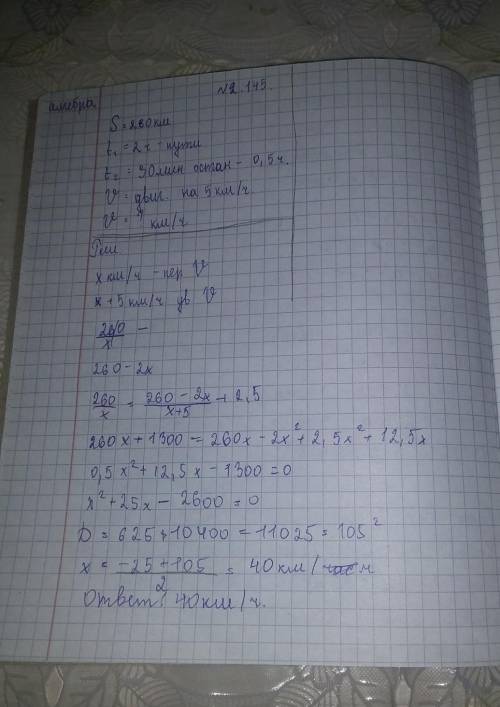 алгебра
№2.145.
S = 260 км
t₁ = 2ч - пути
t₂ = 30 мин остан - 0,5ч.
V = двиг. на 5 км/ч.
V = ? км/ч
Реш
x км/ч - пер V
x + 5 км/ч дв V
260/x -
260 - 2x
260/x = (260 - 2x)/(x+5) + 2,5
260x + 1300 = 260x - 2x² + 2,5x² + 12,5x
0,5x² + 12,5x - 1300 = 0
x² + 25x - 2600 = 0
D = 625 + 10400 = 11025 = 105²
x = (-25 + 105)/2 = 40 км/ч
Ответ: 40 км/ч.